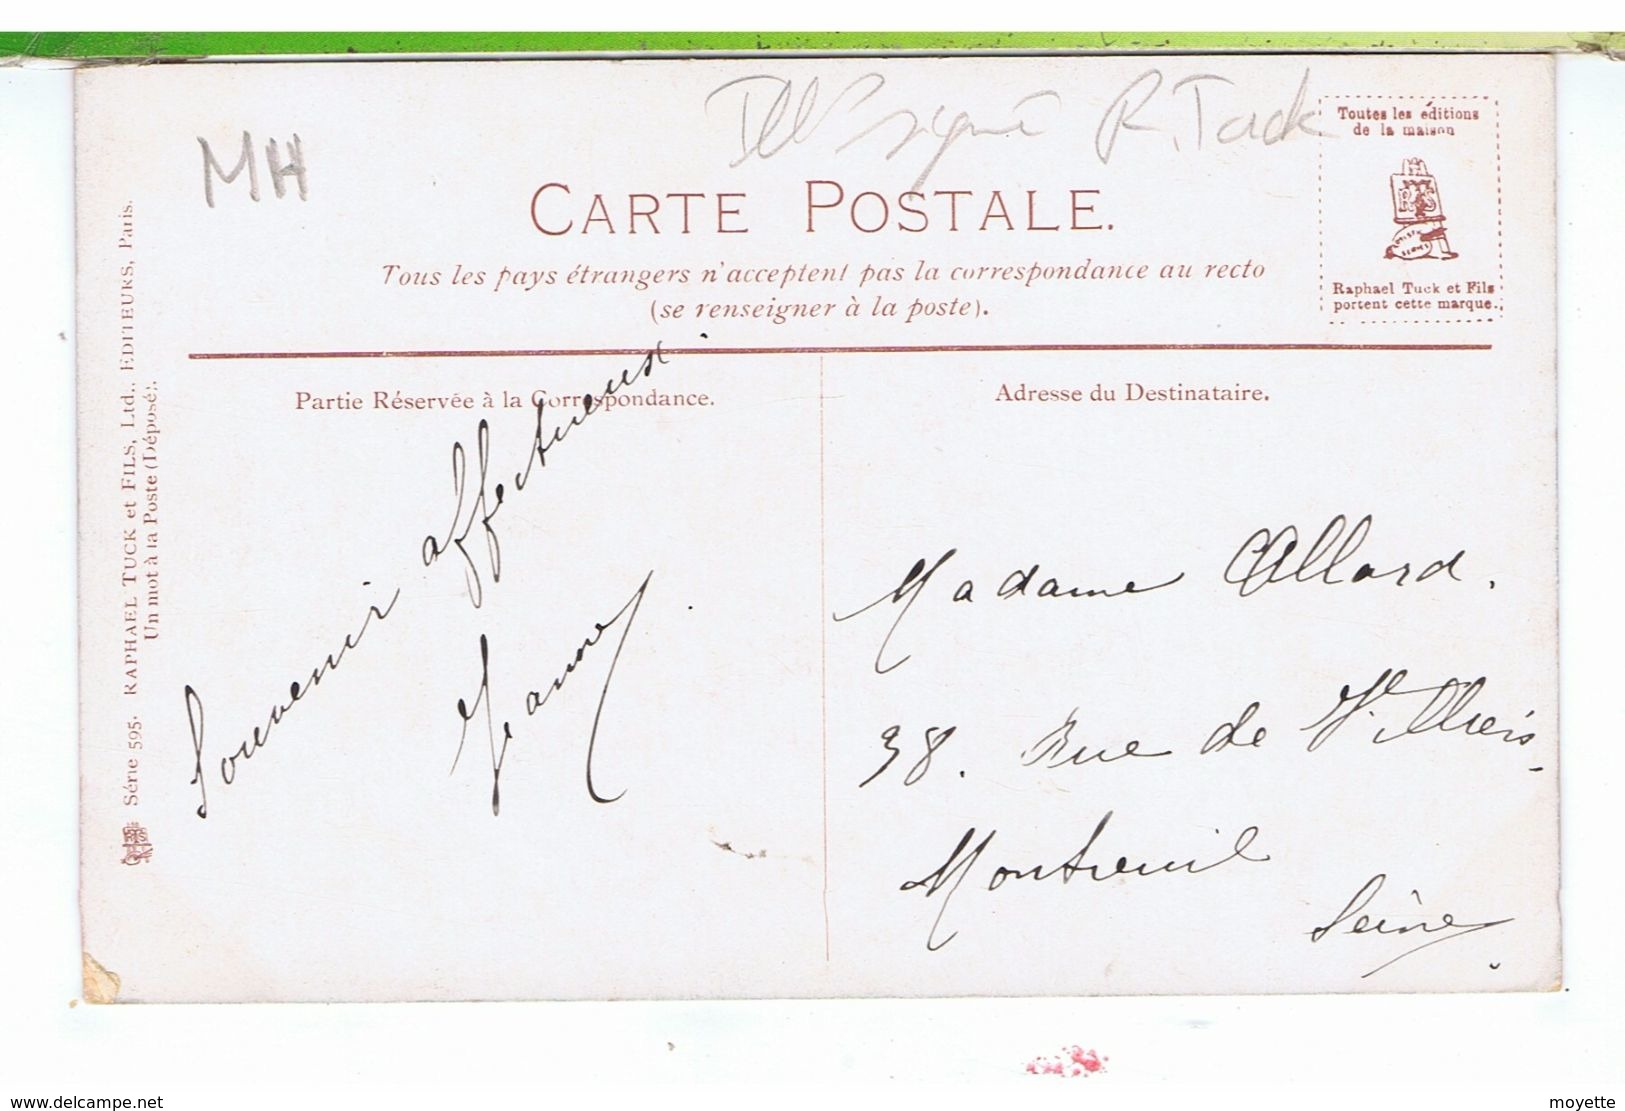 MH
Illr signé R. Tuck
CARTE POSTALE.
Tous les pays étrangers n'acceptent pas la correspondance au recto
(se renseigner à la poste).
Toutes les éditions
de la maison
Raphael Tuck et Fils
portent cette marque.
Partie Réservée à la Correspondance.
Adresse du Destinataire.
Souvenir affectueux.
Jeanne
Madame Allard.
38. Rue de Villiers
Montreuil
Seine
Série 595. RAPHAEL TUCK et FILS, Ltd., EDITEURS, Paris.
Un mot à la Poste (Déposé).
delcampe.net
moyette